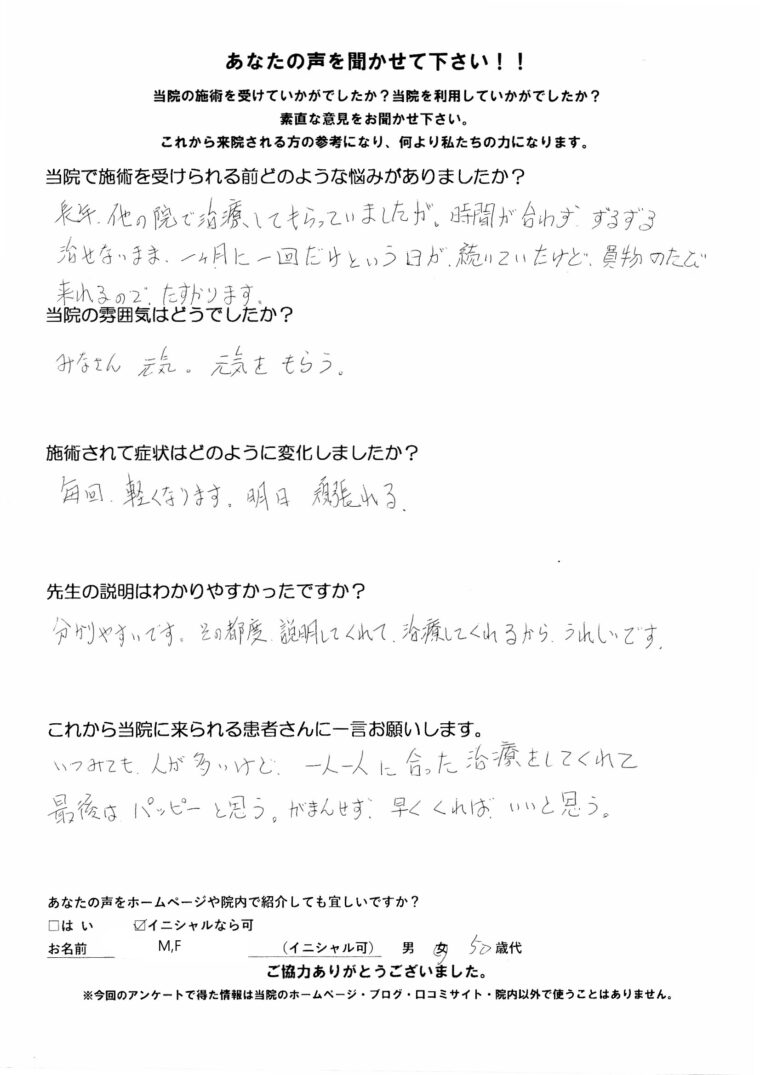 あなたの声を聞かせて下さい！！
当院の施術を受けていかがでしたか？当院を利用していかがでしたか？
素直な意見をお聞かせ下さい。
これから来院される方の参考になり、何より私たちの力になります。
当院で施術を受けられる前どのような悩みがありましたか？
長年、他の院で治療してもらっていましたが。時間が合わず ずるずる
治せないまま、一ヶ月に一回だけという日が、続いていたけど、買物のたび
来れるので、たすかります。
当院の雰囲気はどうでしたか？
みなさん 元気。元気を もらう。
施術されて症状はどのように変化しましたか？
毎回、軽くなります。明日 頑張れる。
先生の説明はわかりやすかったですか？
分かりやすいです。その都度、説明してくれて、治療してくれるから、うれしいです。
これから当院に来られる患者さんに一言お願いします。
いつみても、人が多いけど、一人一人に合った治療をしてくれて
最後は パッピーと思う。がまんせず、早くくれば、いいと思う。
あなたの声をホームページや院内で紹介しても宜しいですか？
□はい ☑イニシャルなら可
お名前 M,F （イニシャル可） 男 女 50歳代
ご協力ありがとうございました。
※今回のアンケートで得た情報は当院のホームページ・ブログ・口コミサイト・院内以外で使うことはありません。